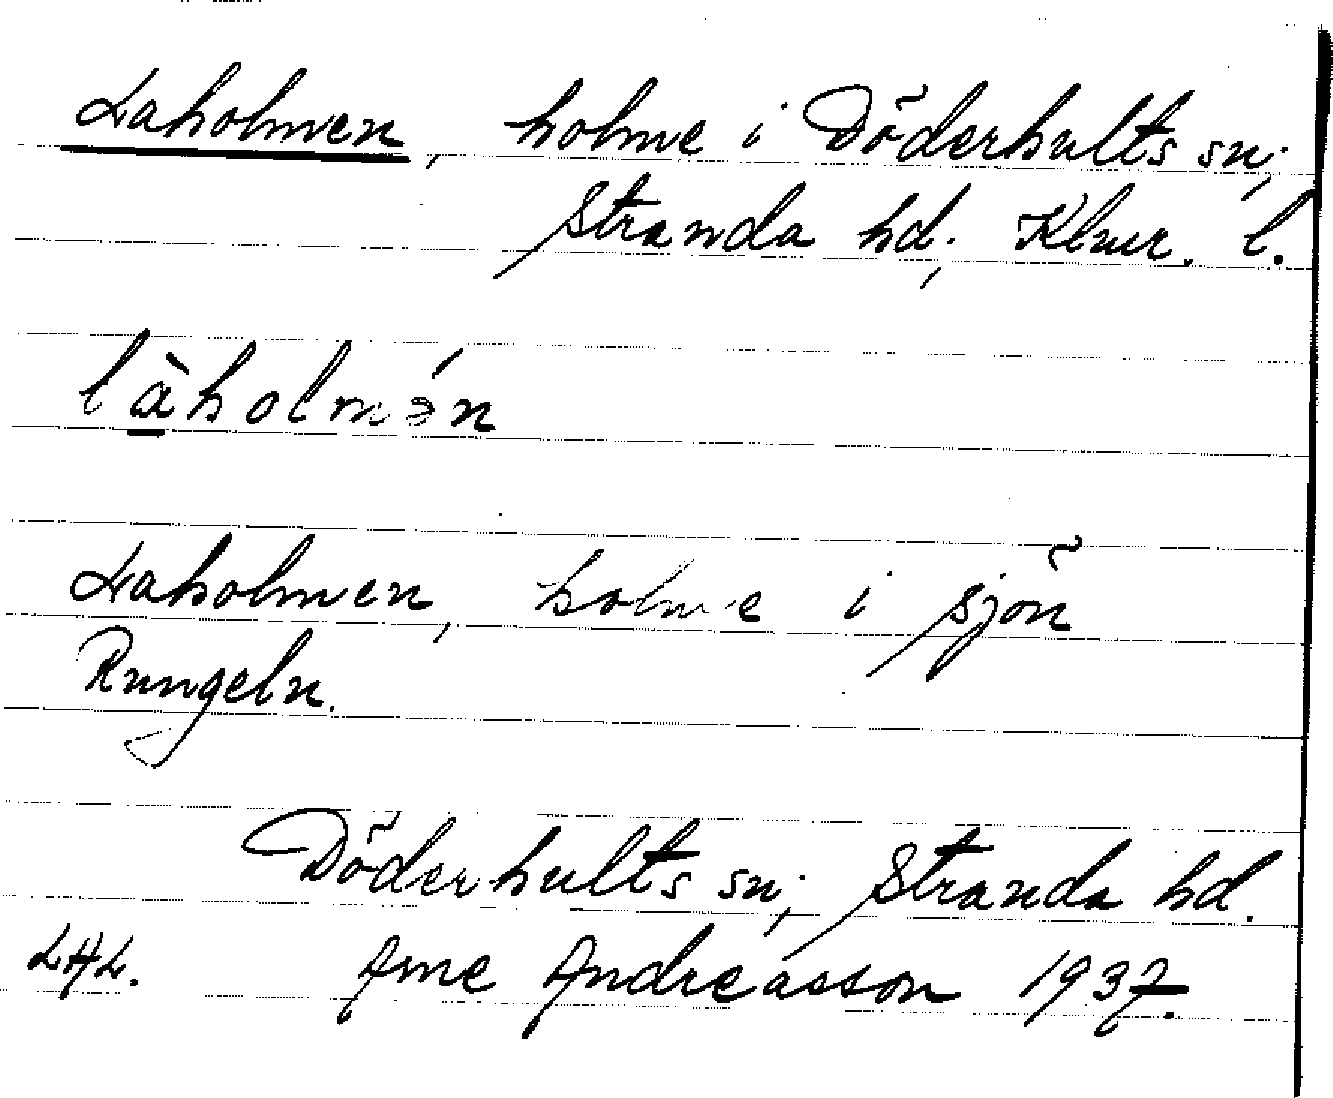 Laholmen, holme i Döderhults sn;
Stranda hd; Klmr. l.
là̱holmə́n
Laholmen, holme i sjön
Rungeln.
Döderhults sn; Stranda hd.
LAL. Arne Andreasson 1937.